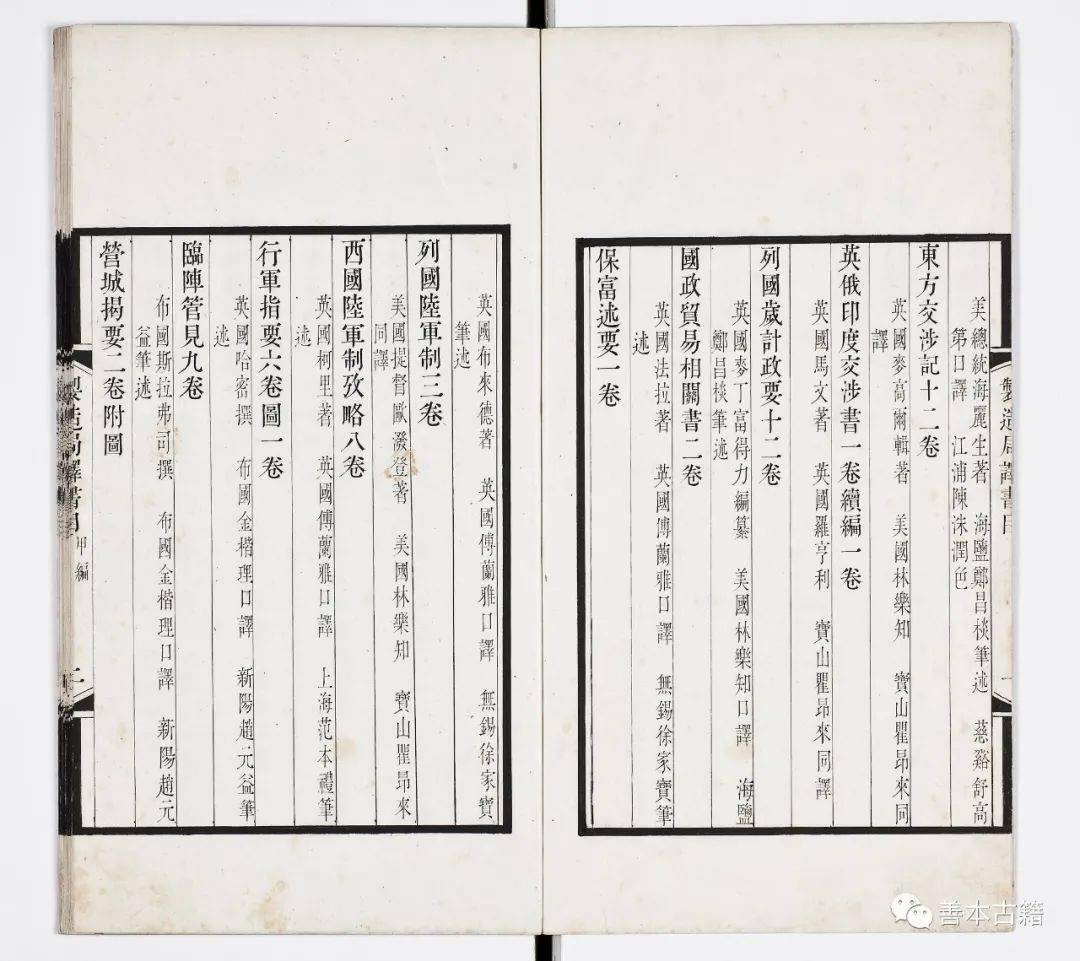 美總統海麗生著　海鹽鄭昌棪筆述　慈谿舒高
第口譯　江浦陳洙潤色
東方交涉記十二卷
英國麥高爾輯著　美國林樂知　寶山瞿昂來同
譯
英俄印度交涉書一卷續編一卷
英國馬文著　英國羅亨利　寶山瞿昂來同譯
列國歲計政要十二卷
英國麥丁富得力編纂　美國林樂知口譯　海鹽
鄭昌棪筆述
國政貿易相關書二卷
英國法拉著　英國傅蘭雅口譯　無錫徐家寶筆
述
保富述要一卷
製造局譯書目
一
英國布來德著　英國傅蘭雅口譯　無錫徐家寶
筆述
列國陸軍制三卷
美國提督歐潑登著　美國林樂知　寶山瞿昂來
同譯
西國陸軍制攷略八卷
英國柯里著　英國傅蘭雅口譯　上海范本禮筆
述
行軍指要六卷圖一卷
英國哈密撰　布國金楷理口譯　新陽趙元益筆
述
臨陣管見九卷
布國斯拉弗司撰　布國金楷理口譯　新陽趙元
益筆述
營城揭要二卷附圖
製造局譯書目
甲編
二
善本古籍